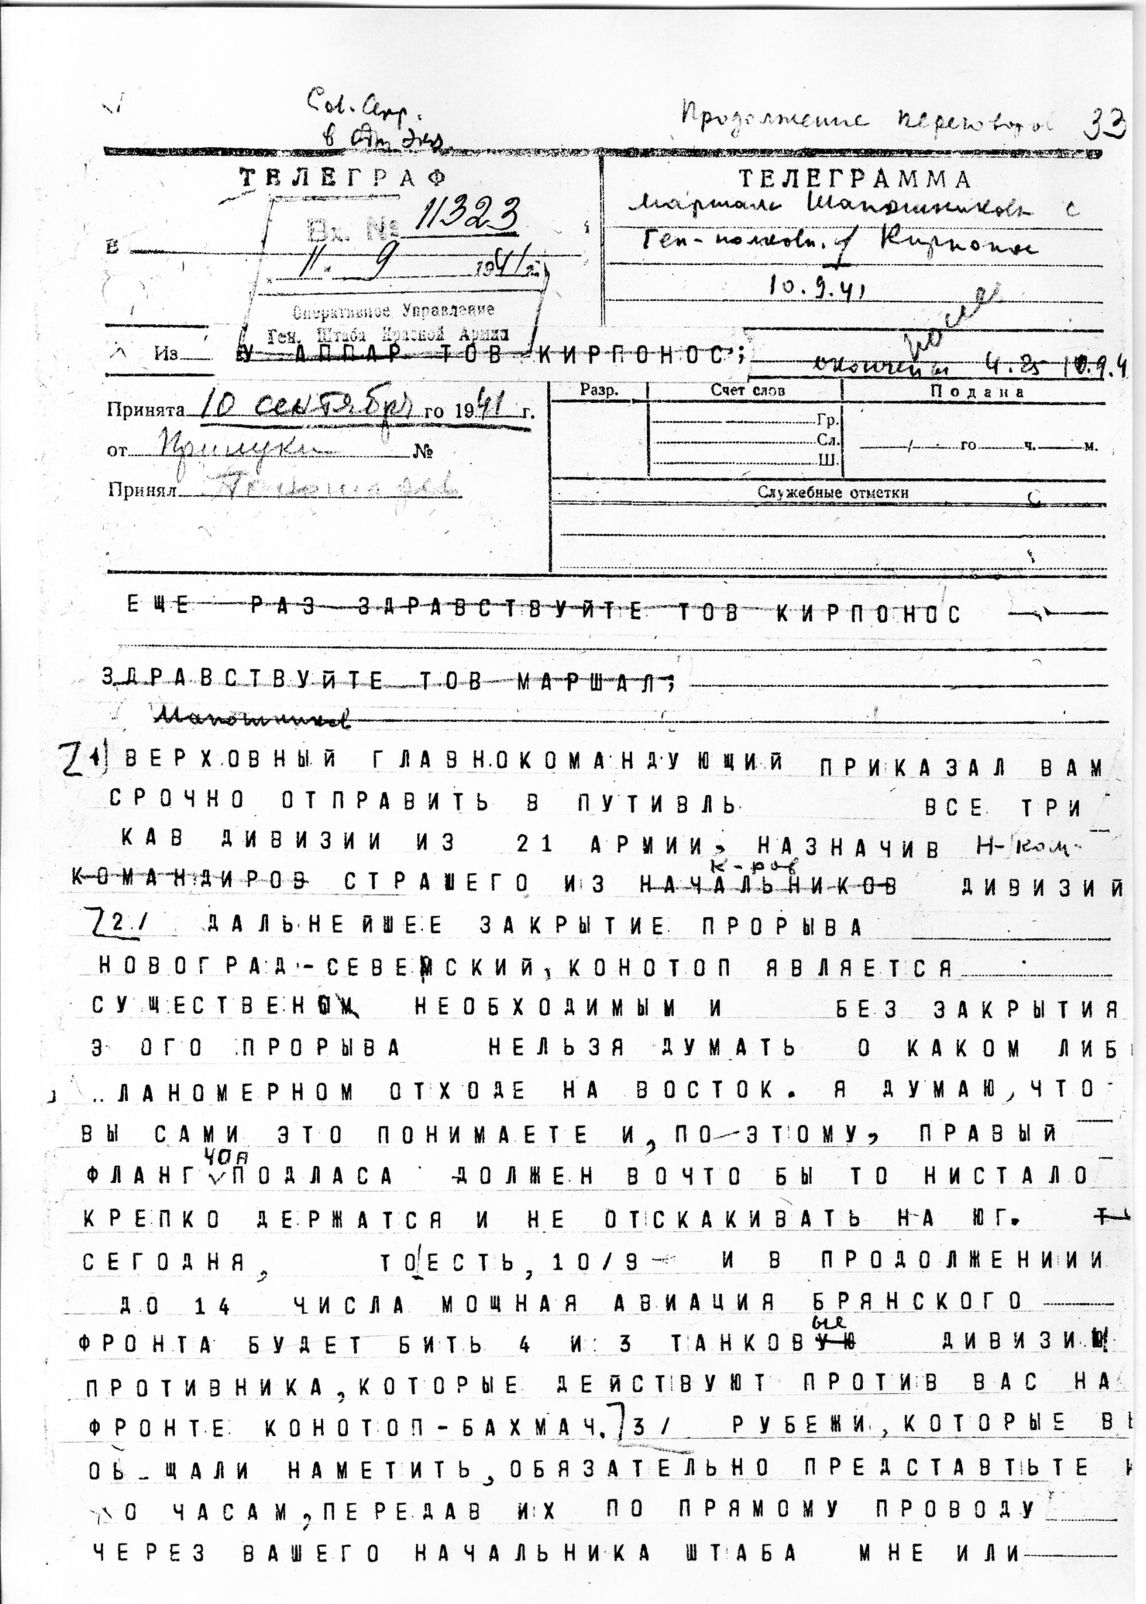 Продолжение переговоров 33
ТЕЛЕГРАФ
ТЕЛЕГРАММА
Вх. № 11323
маршала Шапошникова с
В
Ген-полковн. Кирпонос
11. 9 1941 г.
10.9.41
Оперативное Управление
Ген. Штаба Красной Армии
после
Из У АППАР ТОВ КИРПОНОС;
окончен 4.25 10.9.4
Принята 10 сентября го 1941 г.
Разр.
Счет слов
Подана
Гр.
Сл.
Ш.
го ч. м.
от Прилуки №
Принял
Служебные отметки
ЕЩЕ РАЗ ЗДРАВСТВУЙТЕ ТОВ КИРПОНОС
ЗДРАВСТВУЙТЕ ТОВ МАРШАЛ;
Шапошников
1) ВЕРХОВНЫЙ ГЛАВНОКОМАНДУЮЩИЙ ПРИКАЗАЛ ВАМ
СРОЧНО ОТПРАВИТЬ В ПУТИВЛЬ ВСЕ ТРИ
КАВ ДИВИЗИИ ИЗ 21 АРМИИ, НАЗНАЧИВ Н-ком
к-ров
КОМАНДИРОВ СТРАШЕГО ИЗ НАЧАЛЬНИКОВ ДИВИЗИЙ
2/ ДАЛЬНЕЙШЕЕ ЗАКРЫТИЕ ПРОРЫВА
НОВОГРАД-СЕВЕРСКИЙ, КОНОТОП ЯВЛЯЕТСЯ
СУЩЕСТВЕННОМ НЕОБХОДИМЫМ И БЕЗ ЗАКРЫТИЯ
Э ОГО ПРОРЫВА НЕЛЬЗЯ ДУМАТЬ О КАКОМ ЛИБ
ЛАНОМЕРНОМ ОТХОДЕ НА ВОСТОК. Я ДУМАЮ, ЧТО
ВЫ САМИ ЭТО ПОНИМАЕТЕ И, ПО-ЭТОМУ, ПРАВЫЙ
40А
ФЛАНГ ПОДЛАСА ДОЛЖЕН ВОЧТО БЫ ТО НИСТАЛО
КРЕПКО ДЕРЖАТСЯ И НЕ ОТСКАКИВАТЬ НА ЮГ. Т
СЕГОДНЯ, ТОЕСТЬ, 10/9- И В ПРОДОЛЖЕНИИИ
ДО 14 ЧИСЛА МОЩНАЯ АВИАЦИЯ БРЯНСКОГО
ые
ФРОНТА БУДЕТ БИТЬ 4 И 3 ТАНКОВУЮ ДИВИЗИЮ
ПРОТИВНИКА, КОТОРЫЕ ДЕЙСТВУЮТ ПРОТИВ ВАС НА
ФРОНТЕ КОНОТОП-БАХМАЧ. 3/ РУБЕЖИ, КОТОРЫЕ В
ОБ ЩАЛИ НАМЕТИТЬ, ОБЯЗАТЕЛЬНО ПРЕДСТАВТЬТЕ К
О ЧАСАМ, ПЕРЕДАВ ИХ ПО ПРЯМОМУ ПРОВОДУ
ЧЕРЕЗ ВАШЕГО НАЧАЛЬНИКА ШТАБА МНЕ ИЛИ